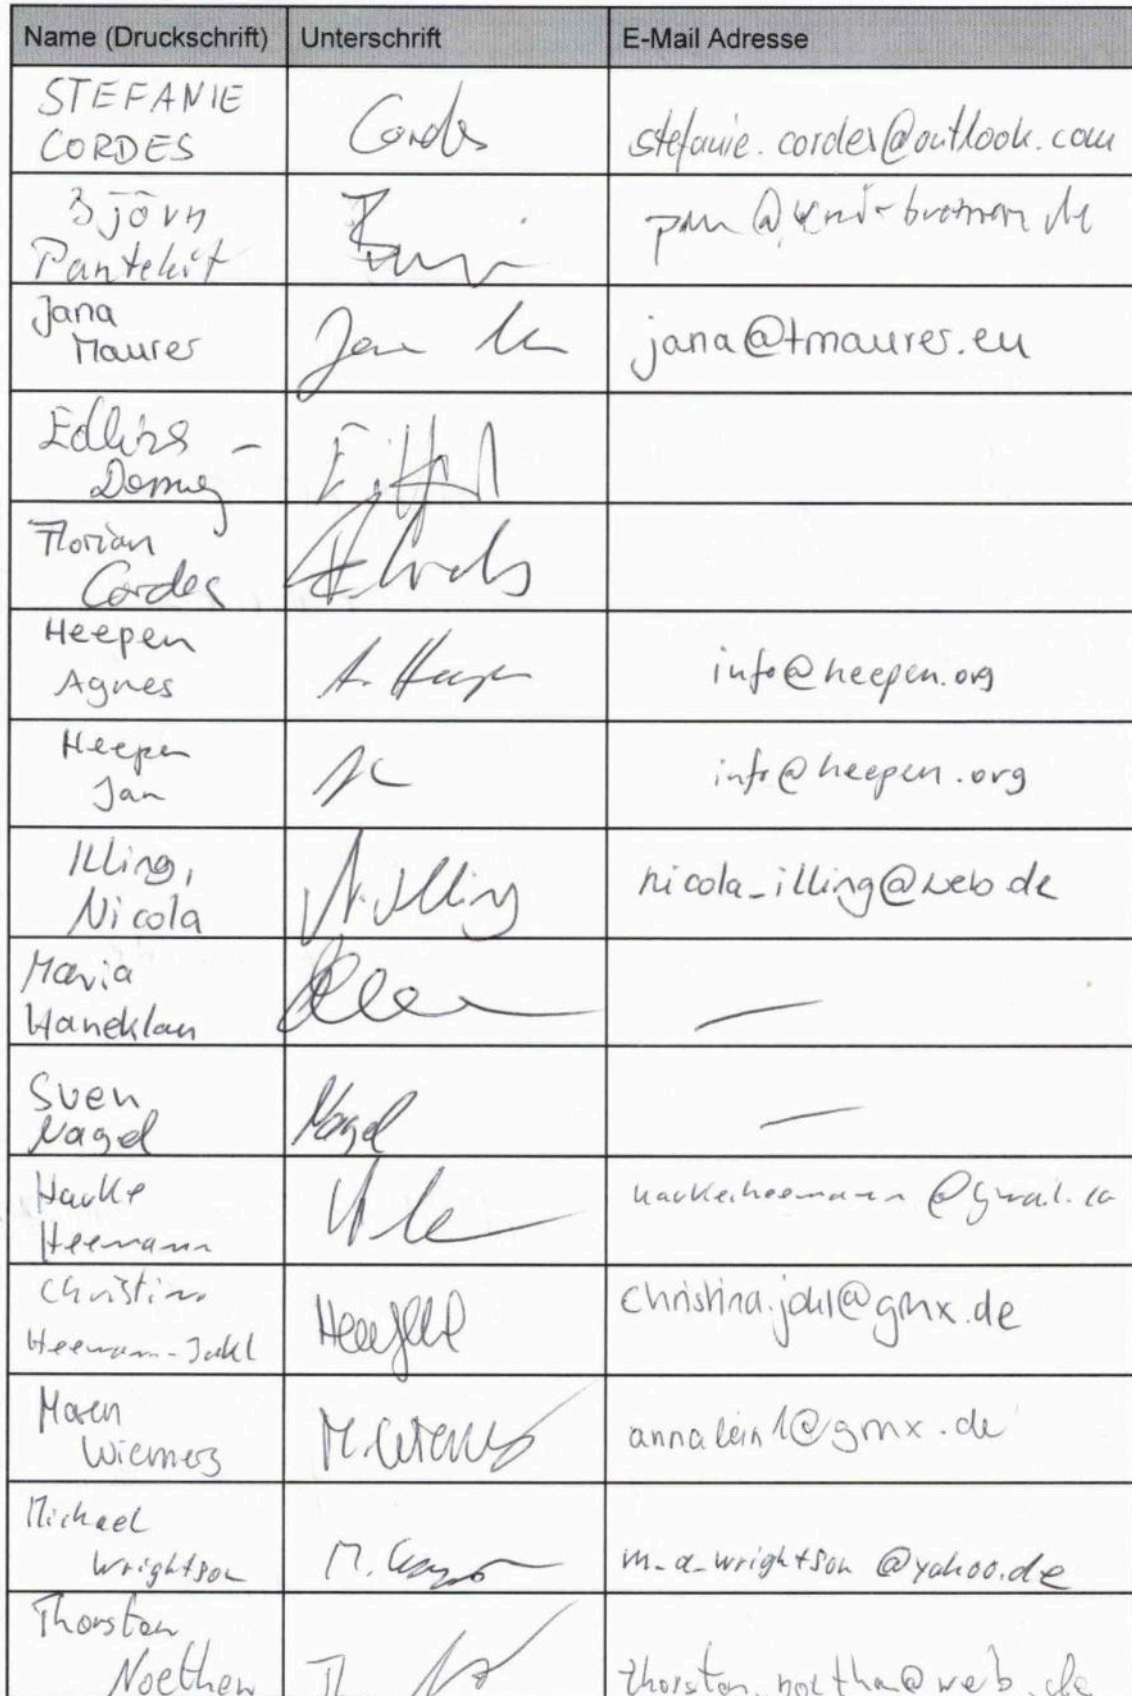 Name (Druckschrift) Unterschrift E-Mail Adresse
STEFANIE
CORDES Cordes stefanie.cordes@outlook.com
Björn
Pantekit
Jana
Maurer jana@tmaurer.eu
Florian
Cordes
Heepen
Agnes A. Heepen info@heepen.org
Heepen
Jan info@heepen.org
Illing,
Nicola N. Illing nicola_illing@web.de
Maria
Haneklau —
Sven
Nagel Nagel —
Hauke
Heemann haukeheemann@gmail.co
Christina
Heemann-Jakl christina.jakl@gmx.de
Maren
Wiemers M. Wiemers annalein1@gmx.de
Michael
Wrightson m_a_wrightson@yahoo.de
Thorsten
Noethen thorsten.noethen@web.de